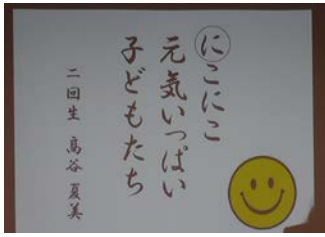 にこにこ
元気いっぱい
子どもたち
二回生 高谷夏美